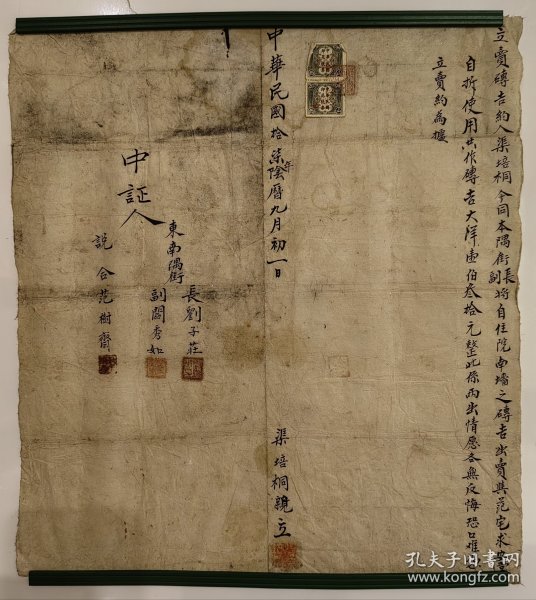 立賣磚吉約人渠培桐今同本隅街長副將自住院南墻之磚吉出賣與范宅
自折使用共作磚吉大洋壹伯叁拾元整此係兩出情愿各無反悔恐口难
立賣約為據
中華民國拾柒年陰曆九月初一日
渠培桐親立
中証人
東南隅街
長劉子莊
副閻秀如
說合范樹齋
孔夫子旧书网
www.kongfz.com